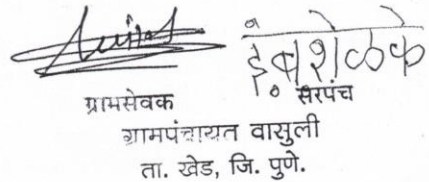 इं. ब. शेळके
ग्रामसेवक सरपंच
ग्रामपंचायत वासुली
ता. खेड, जि. पुणे.